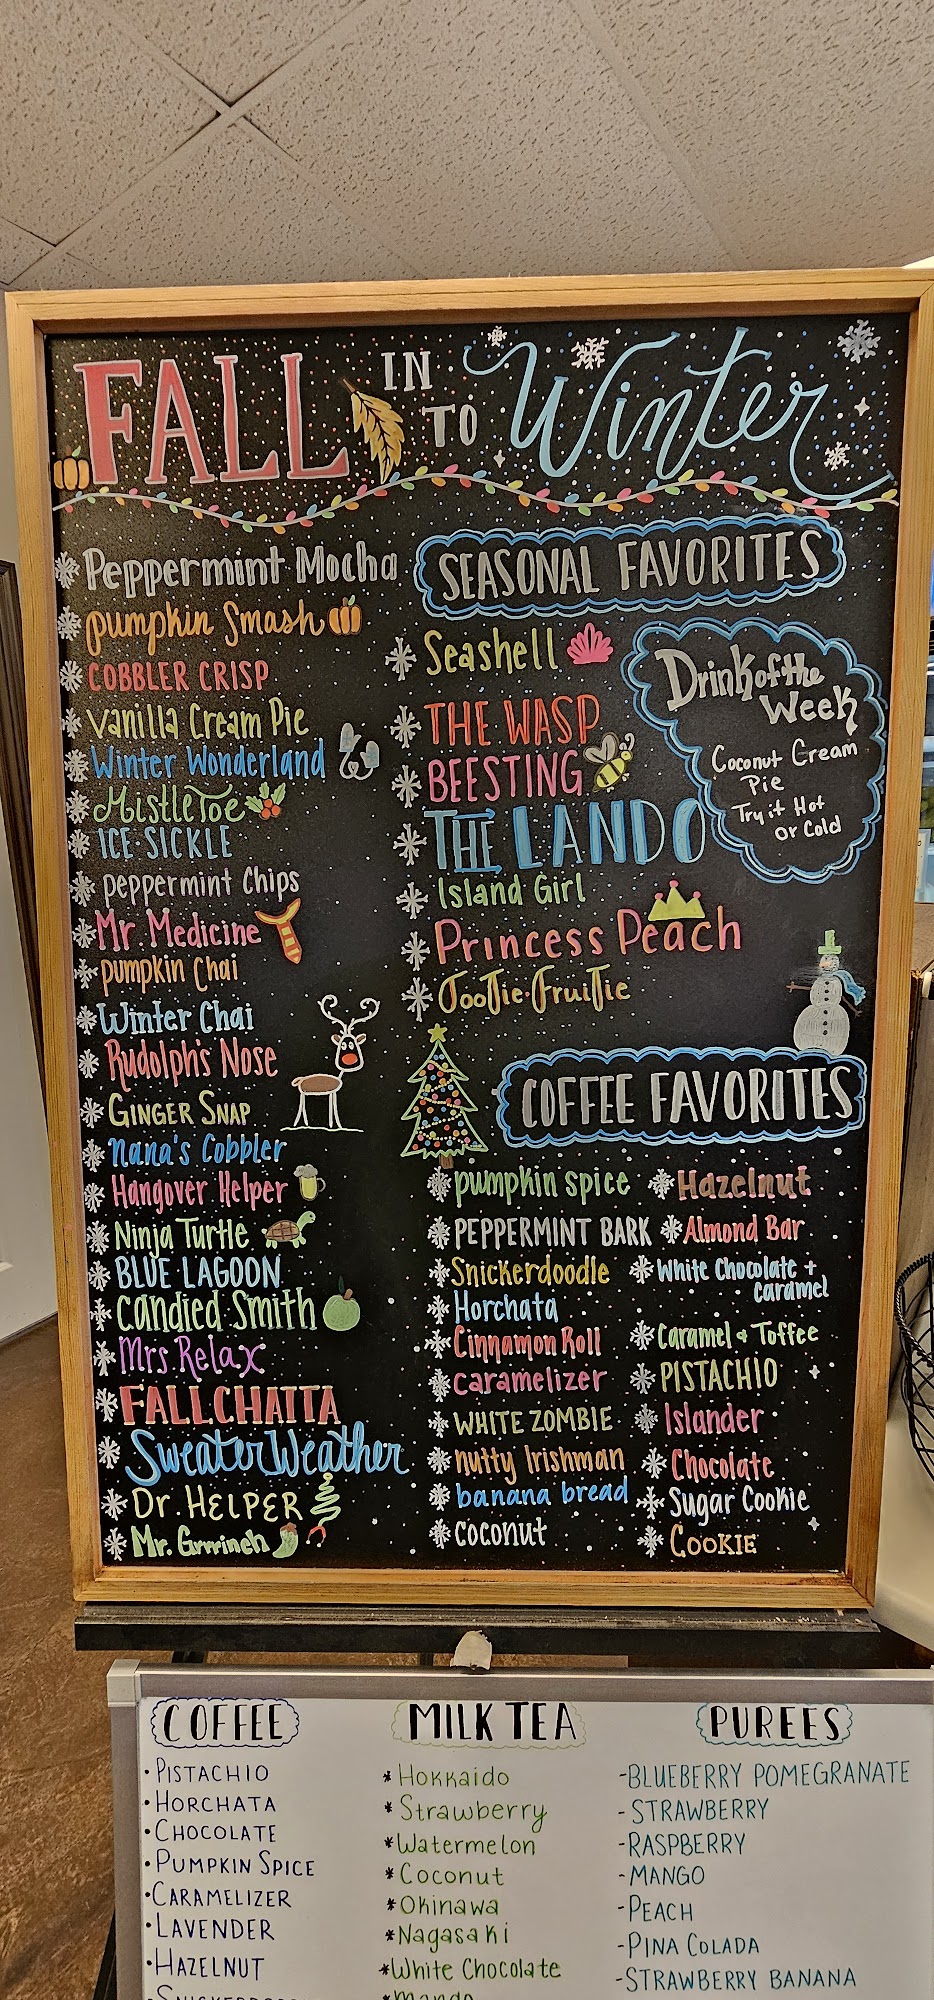 FALL IN TO Winter
Peppermint Mocha
pumpkin Smash
COBBLER CRISP
Vanilla Cream Pie
Winter Wonderland
MistleToe
ICE·SICKLE
peppermint Chips
Mr. Medicine
pumpkin Chai
Winter Chai
Rudolph's Nose
GINGER SNAP
nana's Cobbler
Hangover Helper
Ninja Turtle
BLUE LAGOON
Candied Smith
Mrs Relax
FALLCHATTA
Sweater Weather
Dr. HELPER
Mr. Grrrinch
SEASONAL FAVORITES
Seashell
THE WASP
BEESTING
THE LANDO
Island Girl
Princess Peach
TooTie·FruiTie
Drink of the
Week
Coconut Cream
Pie
Try it Hot
or Cold
COFFEE FAVORITES
pumpkin spice
PEPPERMINT BARK
Snickerdoodle
Horchata
Cinnamon Roll
caramelizer
WHITE ZOMBIE
nutty Irishman
banana bread
coconut
Hazelnut
Almond Bar
White Chocolate +
caramel
Caramel & Toffee
PISTACHIO
Islander
Chocolate
Sugar Cookie
COOKIE
COFFEE
·PISTACHIO
·HORCHATA
·CHOCOLATE
·PUMPKIN SPICE
·CARAMELIZER
·LAVENDER
·HAZELNUT
MILK TEA
*Hokkaido
*Strawberry
*Watermelon
*Coconut
*Okinawa
*Nagasaki
*White Chocolate
*Mango
PUREES
-BLUEBERRY POMEGRANATE
-STRAWBERRY
-RASPBERRY
-MANGO
-PEACH
-PINA COLADA
-STRAWBERRY BANANA